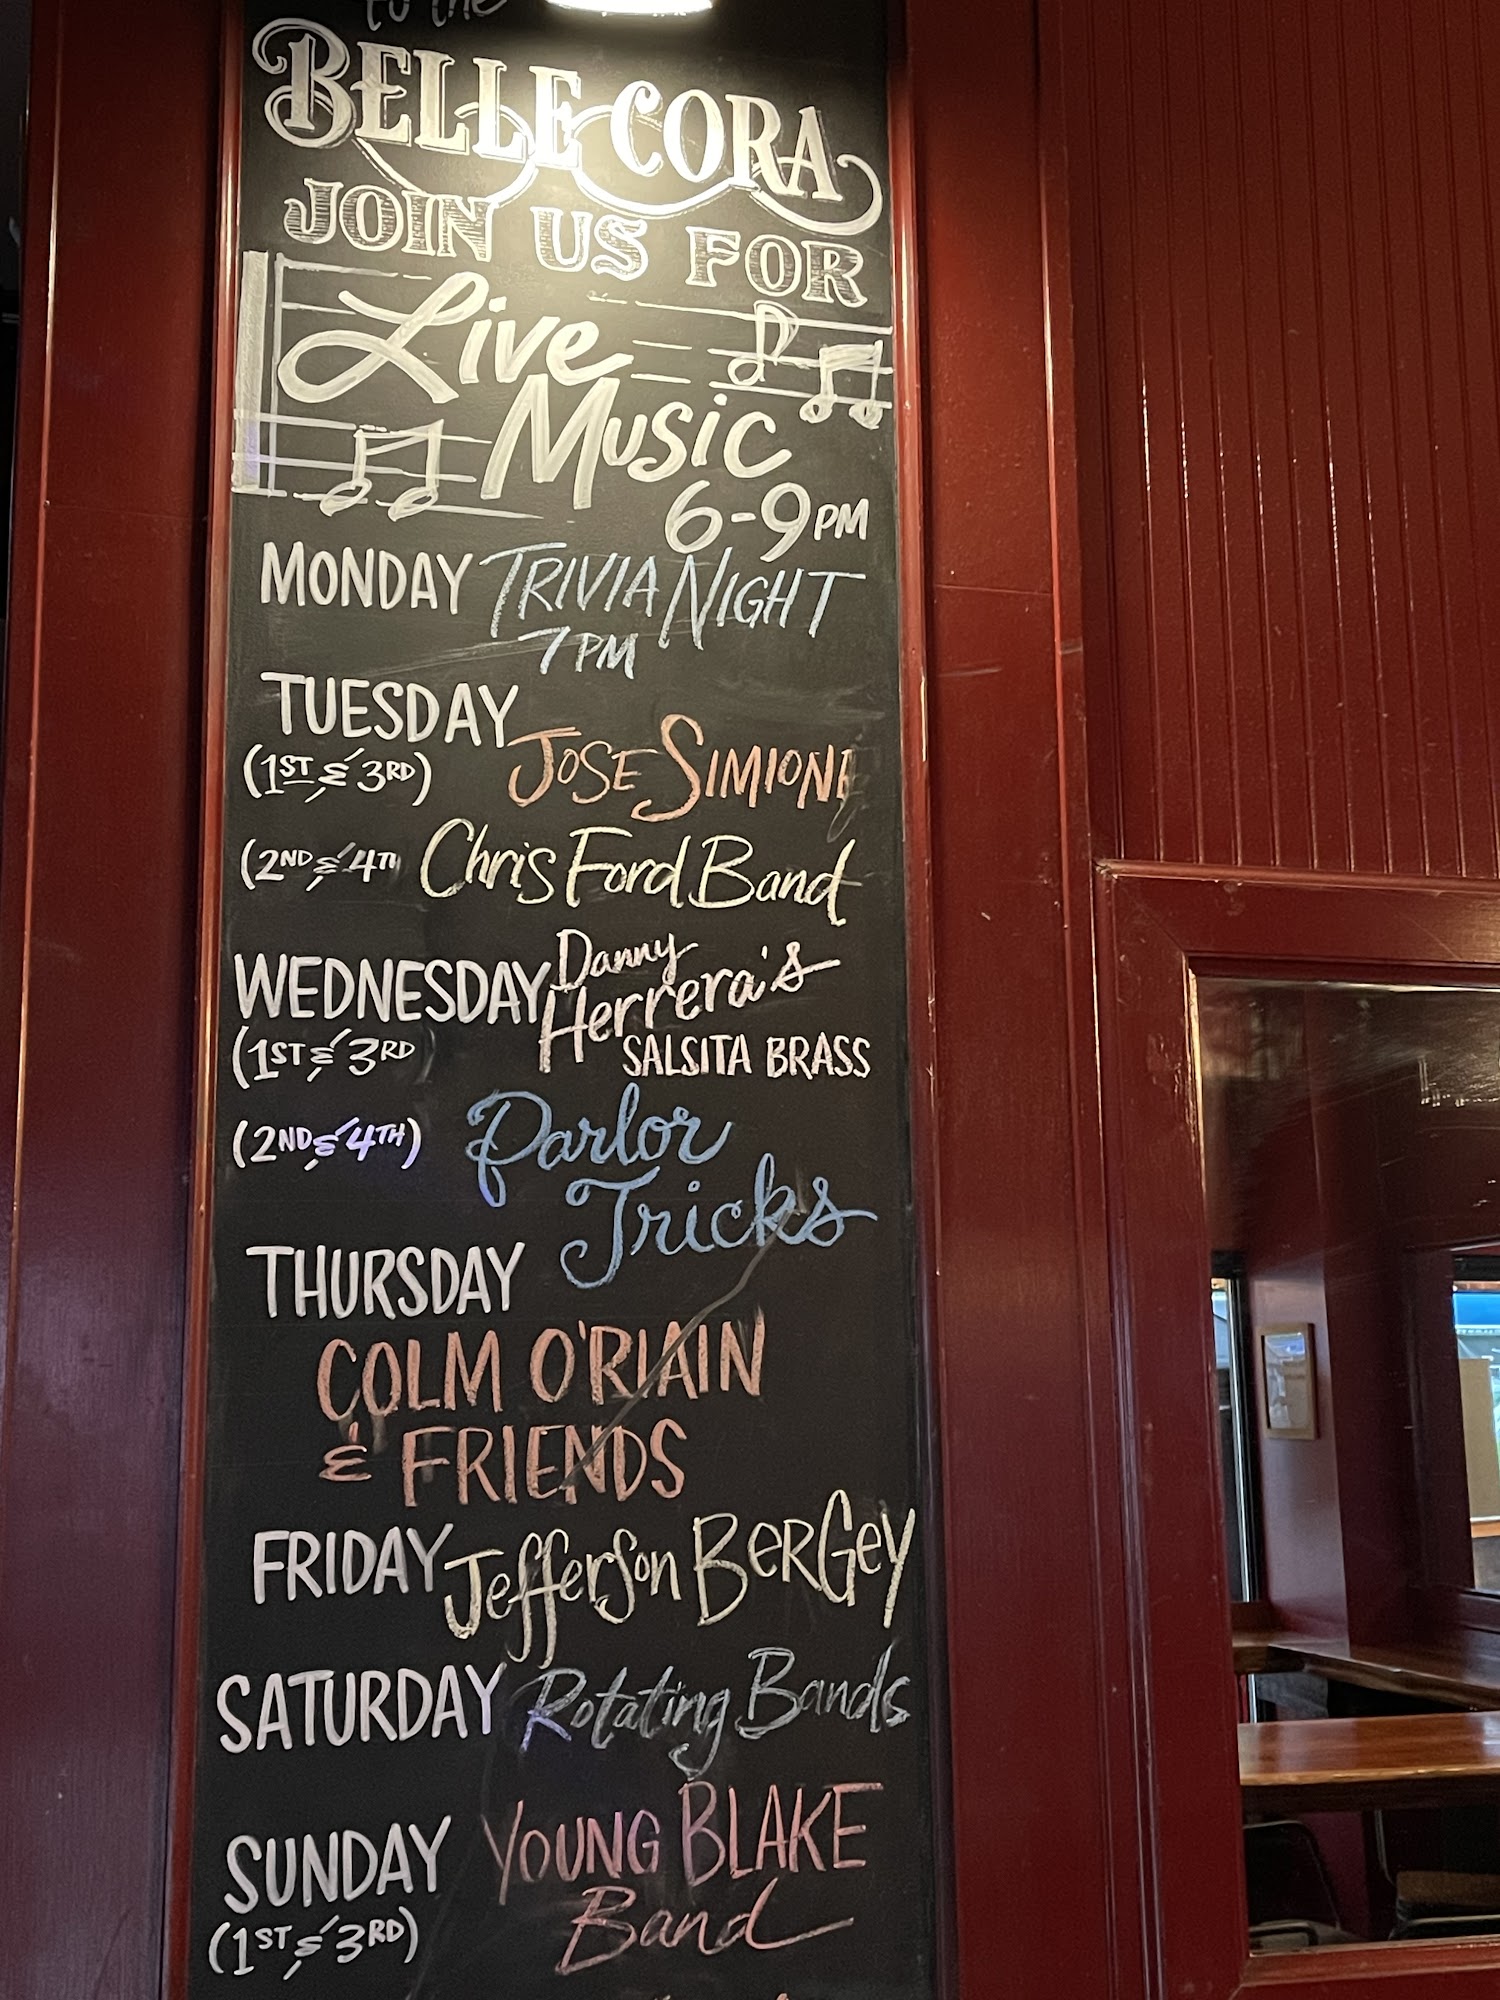 to the
BELLE CORA
JOIN US FOR
Live
Music
6-9PM
MONDAY TRIVIA NIGHT
7PM
TUESDAY
(1ST & 3RD) JOSE SIMIONI
(2ND & 4TH Chris Ford Band
WEDNESDAY Danny
Herrera's
(1ST & 3RD SALSITA BRASS
(2ND & 4TH) Parlor
Tricks
THURSDAY
COLM O'RIAIN
& FRIENDS
FRIDAY Jefferson BerGey
SATURDAY Rotating Bands
SUNDAY YOUNG BLAKE
(1ST & 3RD) Band